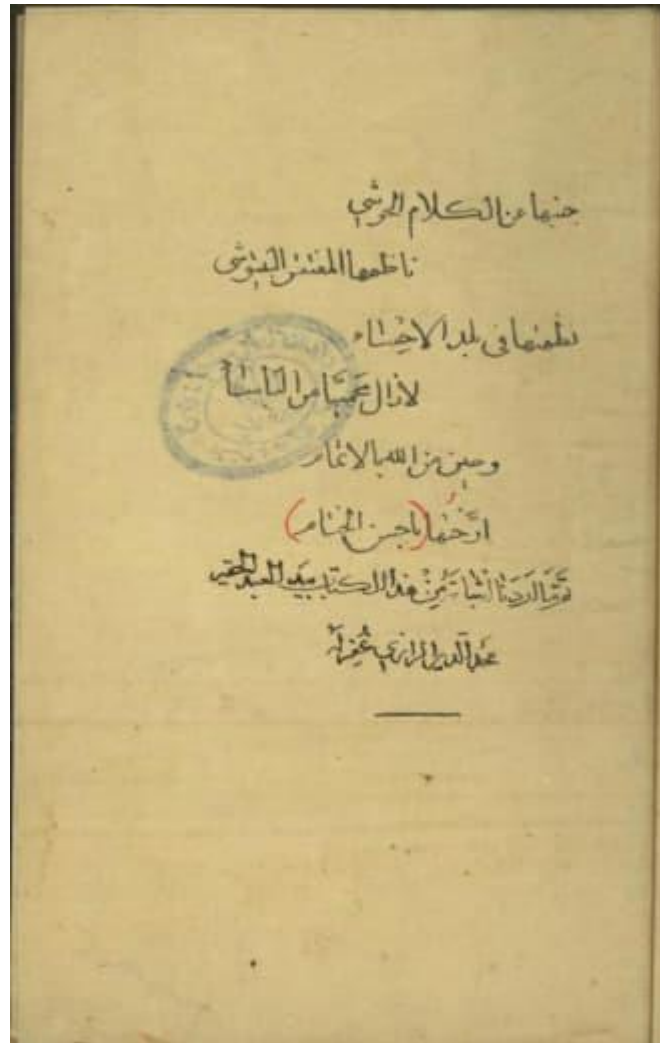 جنبها عن الكلام الحوشي
ناظمها المفتقر البيتوشي
نظمتها في بلد الاحساء
لازال محميا من البأساء
وحين من الله بالاتمام
ارختها (باحسن الختام)
تم ما اردنا اثباته من هذا الكتاب بيد العبد الحقير
غفر له